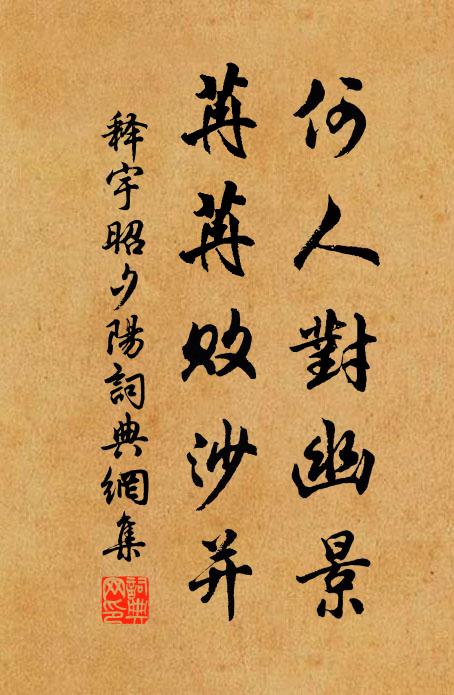 何人對幽景
苒苒敗沙并
释宇昭夕陽詞典網集
詞典网印